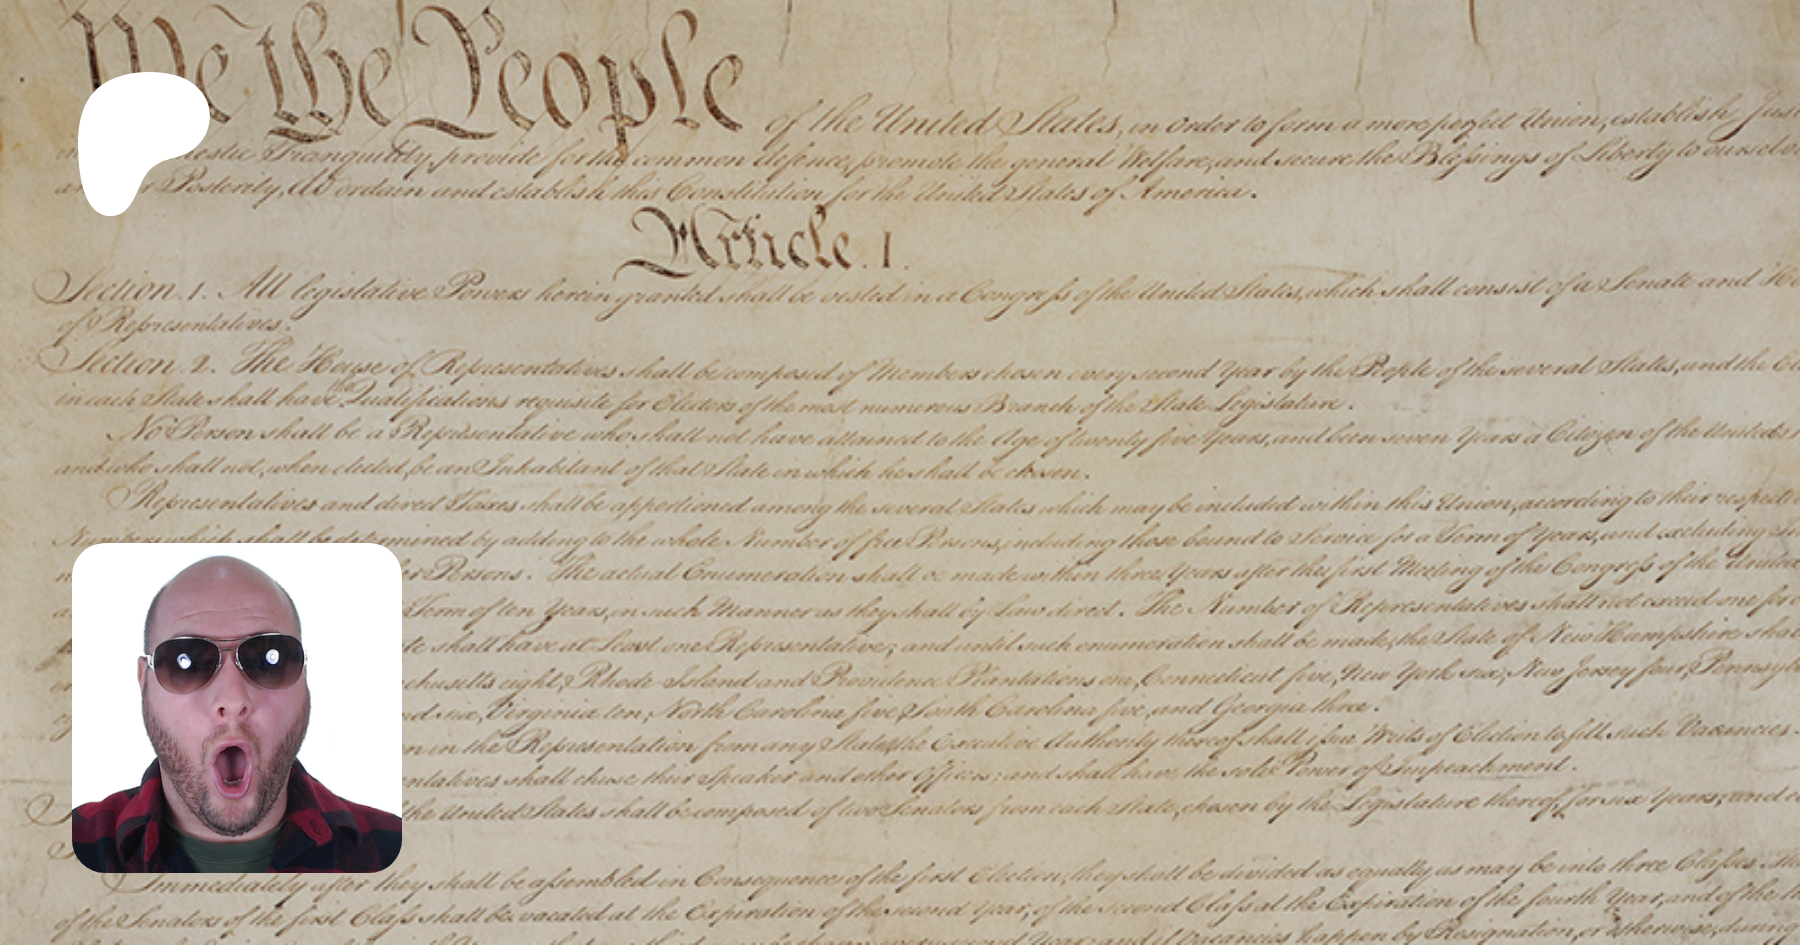 We the People of the United States, in Order to form a more perfect Union, establish Jus
Domestic Tranquility, provide for the common defence, promote the general Welfare, and secure the Blessings of Liberty to ourselve
Posterity, do ordain and establish this Constitution for the United States of America.
Article. I.
Section. 1. All legislative Powers herein granted shall be vested in a Congress of the United States, which shall consist of a Senate and Ho
of Representatives.
Section. 2. The House of Representatives shall be composed of Members chosen every second Year by the People of the several States, and the
in each State shall have the Qualifications requisite for Electors of the most numerous Branch of the State Legislature.
No Person shall be a Representative who shall not have attained to the Age of twenty five Years, and been seven Years a Citizen of the United
and who shall not, when elected, be an Inhabitant of that State in which he shall be chosen.
Representatives and direct Taxes shall be apportioned among the several States which may be included within this Union, according to their respecti
Numbers, which shall be determined by adding to the whole Number of free Persons, including those bound to Service for a Term of Years, and excluding
Persons. The actual Enumeration shall be made within three Years after the first Meeting of the Congress of the United
Term of ten Years, in such Manner as they shall by Law direct. The Number of Representatives shall not exceed one for
shall have at Least one Representative; and until such enumeration shall be made, the State of New Hampshire shal
chusetts eight, Rhode Island and Providence Plantations one, Connecticut five, New York six, New Jersey four, Pennsylv
six, Virginia ten, North Carolina five, South Carolina five, and Georgia three.
in the Representation from any State, the Executive Authority thereof shall issue Writs of Election to fill such Vacancies.
entatives shall chuse their Speaker and other Officers; and shall have the sole Power of Impeachment.
the United States shall be composed of two Senators from each State, chosen by the Legislature thereof, for six Years; and
Immediately after they shall be assembled in Consequence of the first Election, they shall be divided as equally as may be into three Classes.
of the Senators of the first Class shall be vacated at the Expiration of the second Year, of the second Class at the Expiration of the fourth Year, and of the
Year; and if Vacancies happen by Resignation, or otherwise, during